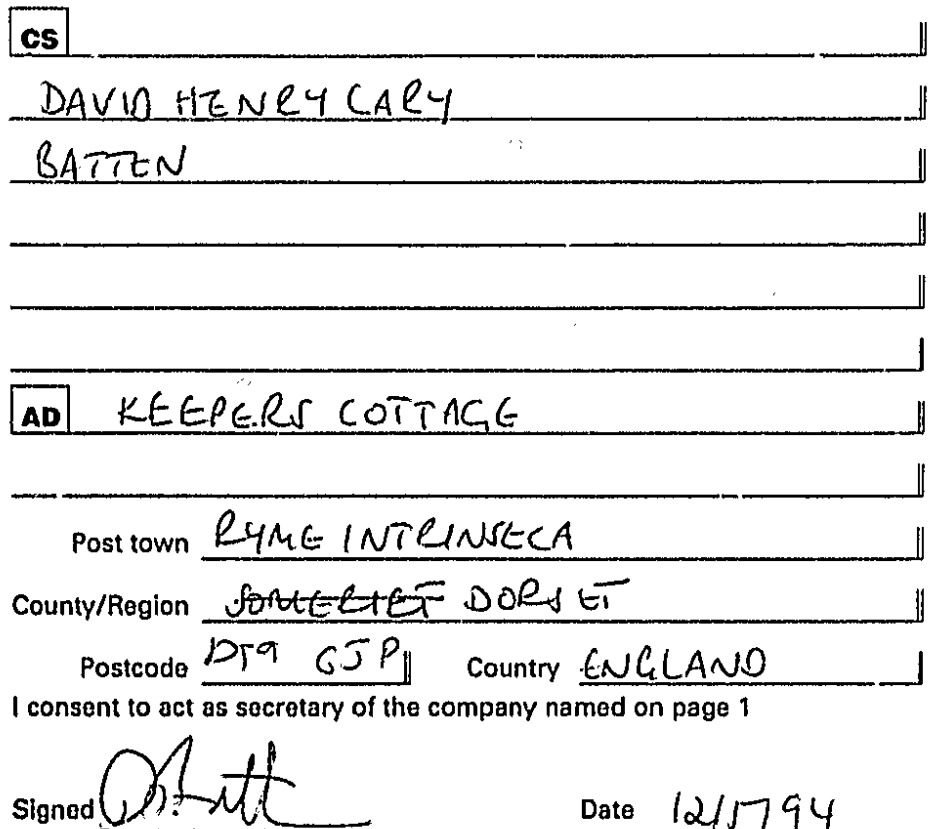 CS
DAVID HENRY CARY
BATTEN
AD KEEPERS COTTAGE
Post town RYME INTRINSECA
County/Region SOMERSET DORSET
Postcode DT9 6JP Country ENGLAND
I consent to act as secretary of the company named on page 1
Signed Date 12/5/94